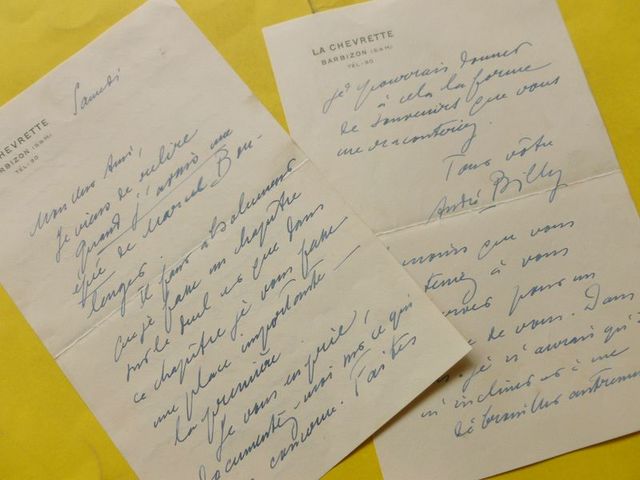 LA CHEVRETTE
BARBIZON (S&M)
TÉL: 90
Samedi
Mon cher Ami,
Je viens de relire
Quand j'avais une
épée de Marcel Bou-
lenger.
Il faut absolument
que je fasse un chapitre
sur le duel et que dans
ce chapitre je vous fasse
une place importante —
la première.
Je vous en prie,
documentez-moi sur ce qui
concerne. Faites
LA CHEVRETTE
BARBIZON (S&M)
TÉL: 90
je pourrais donner
à cela la forme
de souvenirs que vous
me raconteriez.
Tous vôtre
André Billy
moins que vous
teniez à vous
pour un
de vous. Dans
je n'aurai qu'à
m'incliner et à me
débrouiller autrement